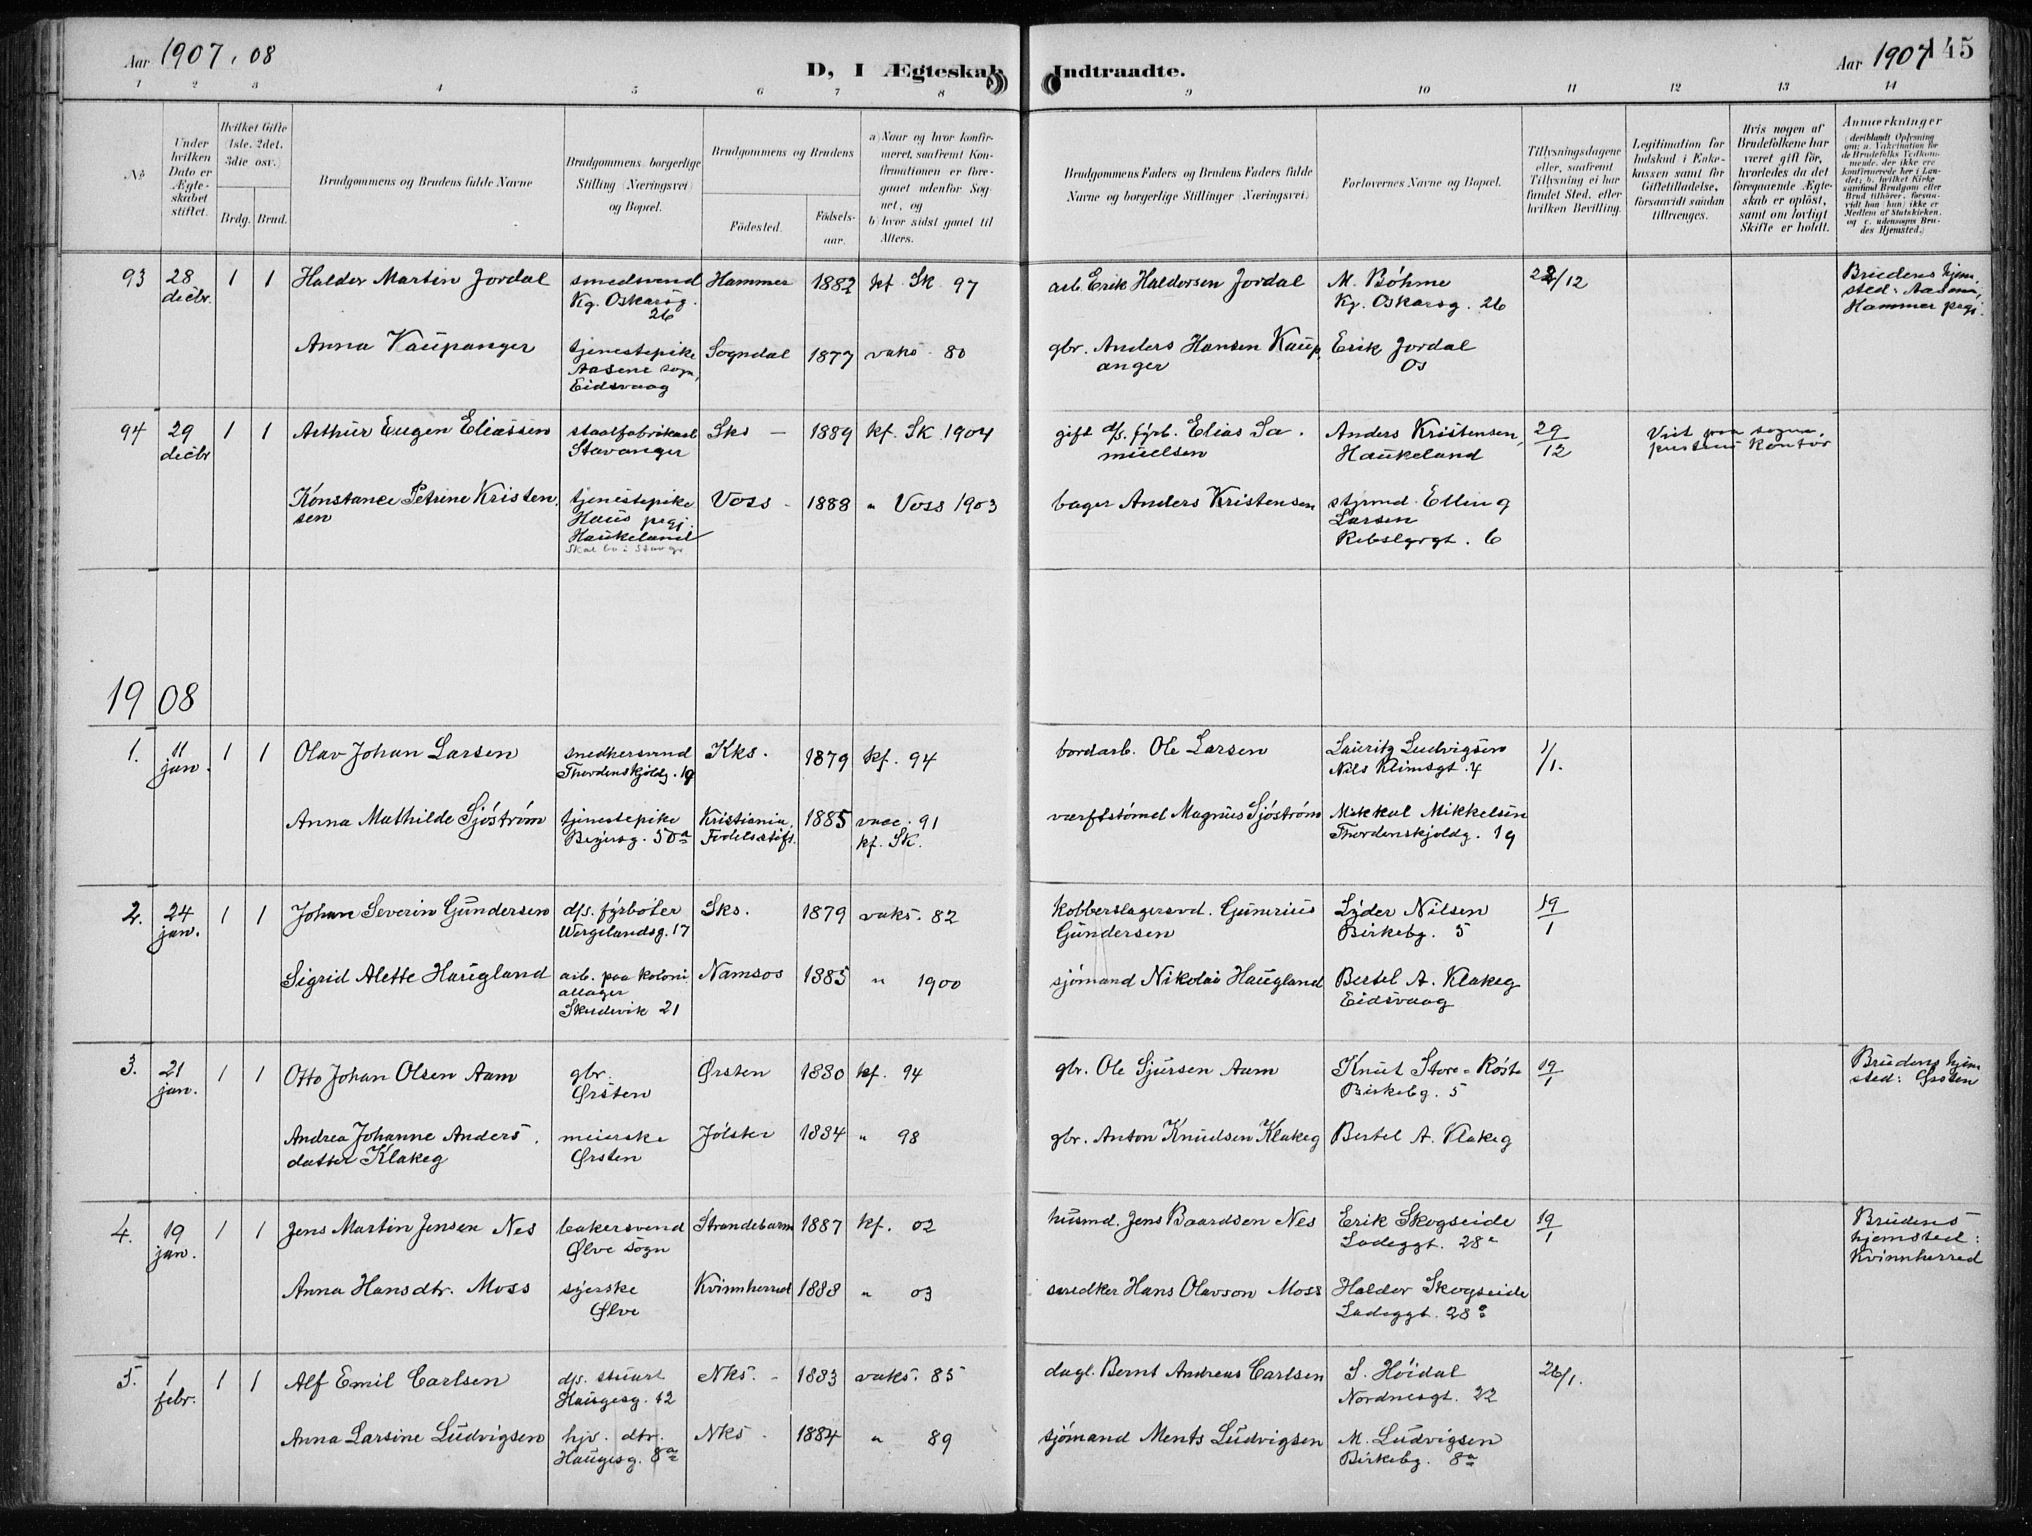 Aar 1907. 08
D, I Ægteskab Indtraadte.
Aar 1907 145
1 2 3 4 5 6 7 8 9 10 11 12 13 14
No.
Under hvilken Dato er Ægteskabet stiftet.
Hvilket Gifte (1ste, 2det, 3die osv.)
Brdg. Brud.
Brudgommens og Brudens fulde Navne
Brudgommens borgerlige Stilling (Næringsvei) og Bopæl.
Brudgommens og Brudens
Födested.
Födselsaar.
a) Naar og hvor konfirmeret, saafremt Konfirmationen er foregaaet udenfor Sognet, og
b) hvor sidst gaaet til Alters.
Brudgommens Faders og Brudens Faders fulde Navne og borgerlige Stillinger (Næringsvei)
Forlovernes Navne og Bopæl.
Tillysningsdagene eller, saafremt Tillysning ei har fundet Sted, efter hvilken Bevilling.
Legitimation for Indskud i Enkekassen samt for Giftetilladelse, forsaavidt saadan tiltrænges.
Hvis nogen af Brudefolkene har været gift før, hvorledes da det foregaaende Ægteskab er oplöst, samt om lovligt Skifte er holdt.
Anmærkninger (deriblandt Oplysning om: a. Vakcination for de Brudefolks Vedkommende, der ikke ere konfirmerede her i Landet; b. hvilket Kirkesamfund Brudgom eller Brud tilhörer, forsaavidt han (hun) ikke er Medlem af Statskirken, og c. udensogns Brudes Hjemsted.)
93 28 decbr. 1 1 Haldor Martin Jordal smedsvend Kg. Oskarsg. 26 Hammer 1882 kf. Sk. 97 arb. Erik Haldorsen Jordal M. Böhme Kg. Oskarsg. 26 22/12 Brudens hjemsted: Aasene, Hammer pregj.
Anna Kaupanger tjenestepike Aasene sogn, Eidsvaag Sogndal 1877 vaks. 80 gbr. Anders Hansen Kaupanger Erik Jordal Os
94 29 decbr 1 1 Arthur Eugen Eliassen staalfabrikarb. Stavanger Sks — 1889 kf. Sk 1904 gift d/s. fyrb. Elias Samuelsen Anders Kristensen, Haukeland 29/12 Viet paa sogneprestens kontor
Konstance Petrine Kristensen tjenestepike Haus pregj. Haukeland Skal bo i Stavgr Voss - 1888 " Voss 1903 bager Anders Kristensen styrmd. Elling Larsen Rebslgrgt. 6
1908
1. 11 jan. 1 1 Olav Johan Larsen snedkersvend Thordenskjoldg. 19 Kks. 1879 kf. 94 bordarb. Ole Larsen Lauritz Ludvigsen Nils Klimsgt. 4 1/1.
Anna Mathilde Sjöström tjenestepike Beyersg. 50a Kristiania, Födelsstift. 1885 vacc. 91 kf. SK. værftstömd Magnus Sjöström Mikkal Mikkelsen Thordenskjoldg. 19
2. 24 jan. 1 1 Johan Severin Gundersen d/s. fyrböter Wergelandsg. 17 Sks. 1879 vaks. 82 kobberslagersvd. Gunerius Gundersen Lyder Nilsen Birkebg. 5 19/1
Sigrid Alette Haugland arb. paa koloniallager Skudevik 21 Namsos 1885 " 1900 sjömand Nikolai Haugland Bertel A. Klakeg Eidsvaag
3. 21 jan. 1 1 Otto Johan Olsen Aam gbr. Ørsten Ørsten 1880 kf. 94 gbr. Ole Sjursen Aam Knut Store-Röste Birkebg. 5 19/1 Brudens hjemsted: Ørsten
Andrea Johanne Andersdatter Klakeg meierske Ørsten Jölster 1884 " 98 gbr. Anton Knudsen Klakeg Bertel A. Klakeg
4. 19 jan. 1 1 Jens Martin Jensen Nes bakersvend Ølve sogn Strandebarm 1887 kf. 02 husmd. Jens Baardsen Nes Erik Skogseide Ladeggt. 28a 19/1 Brudens hjemsted: Kvinnherred
Anna Hansdtr. Moss syerske Ølve Kvinnherred 1888 " 03 snedker Hans Olavson Moss Haldor Skogseide Ladeggt. 28a
5. 1 febr. 1 1 Alf Emil Carlsen d/s. stuart Haugesg. 12 Nks. - 1883 vaks. 85 dagl. Bernt Andreas Carlsen S. Höidal Nordnesgt. 22 26/1.
Anna Larsine Ludvigsen hjv. dtr. Haugesg. 8a Nks - 1884 " 89 sjömand Ments Ludvigsen M. Ludvigsen Birkebg. 8a